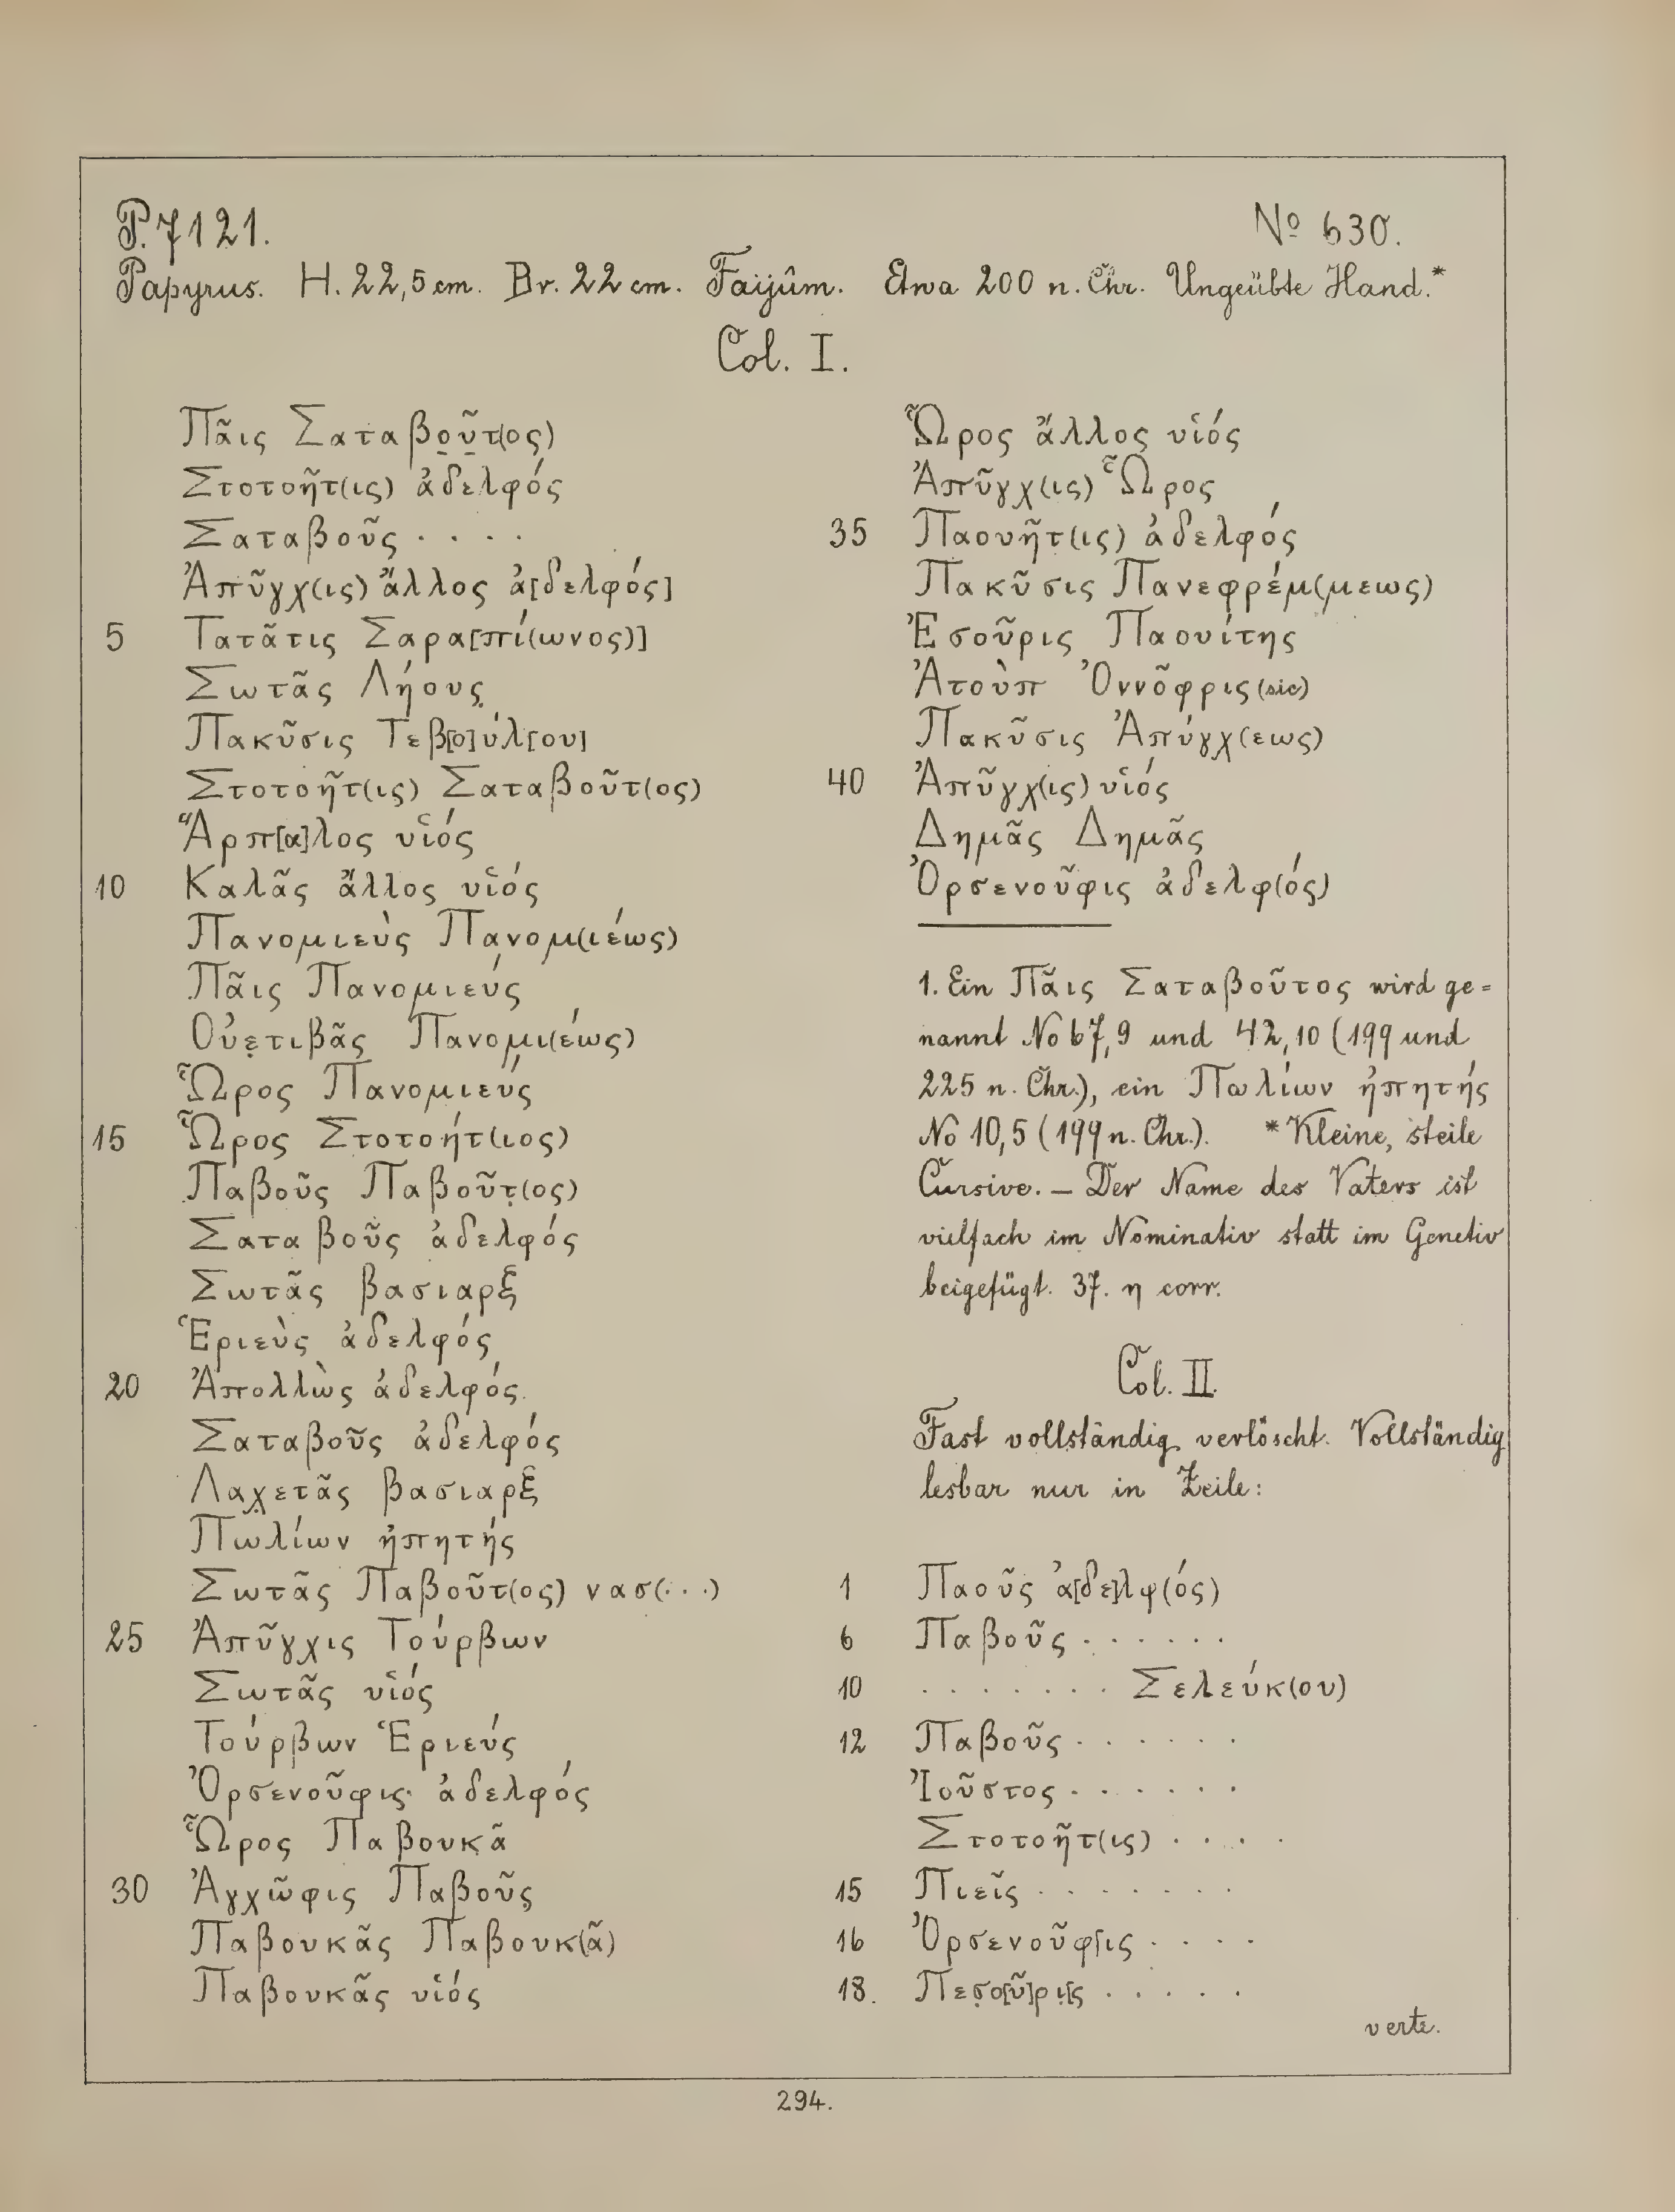 P. 7121. No 630.
Papyrus. H. 22,5 cm. Br. 22 cm. Faijûm. Etwa 200 n. Chr. Ungeübte Hand.*
Col. I.
Πᾶις Σαταβο̣ῦ̣τ(ος)
Στοτοῆτ(ις) ἀδελφός
Σαταβοῦς . . . .
Ἀπῦγχ(ις) ἄλλος ἀ[δελφός]
5 Τατᾶτις Σαρα[πί(ωνος)]
Σωτᾶς Λήους̣
Πακῦσις Τεβ[ο]ύλ[ου]
Στοτοῆτ(ις) Σαταβοῦτ(ος)
Ἅρπ[α]λος υἱός
10 Καλᾶς ἄλλος υἱός
Πανομιεὺς Πανομ(ιέως)
Πᾶις Πανομιεύς
Οὐε̣τιβᾶς Πανομι(έως)
Ὧρος Πανομιεύς
15 Ὧρος Στοτοήτ(ιος)
Παβοῦς Παβοῦτ̣(ος)
Σαταβοῦς ἀδελφός
Σωτᾶς βασιαρξ
Ἑριεὺς ἀδελφός
20 Ἀπολλὼς ἀδελφός.
Σαταβοῦς ἀδελφός
Λαχ̣ετᾶς βασιαρξ
Πωλίων ἠπητής
Σωτᾶς Παβοῦτ(ος) νασ(. . .)
25 Ἀπῦγχις Τούρβων
Σωτᾶς υἱός
Τούρβων Ἑριεύς
Ὀρσενοῦφις ἀδελφός
Ὧρος Παβουκᾶ
30 Ἀγχῶφις Παβοῦς̣
Παβουκᾶς Παβουκ(ᾶ)
Παβουκᾶς υἱός
Ὧρος ἄλλος υἱός
Ἀπῦγχ(ις) Ὧρος
35 Παουῆτ(ις) ἀδελφός
Πακῦσις Πανεφρέμ(μεως)
Ἐσοῦρις Παουίτης
Ἀτοὺπ Ὀννῶφρις (sic)
Πακῦσις Ἀπύγχ(εως)
40 Ἀπῦγχ(ις) υἱός
Δημᾶς Δημᾶς
Ὀρσενοῦφις ἀδελφ(ός)
1. Ein Πᾶις Σαταβοῦτος wird ge=
nannt No 67,9 und 42,10 (199 und
225 n. Chr.), ein Πωλίων ἠπητής
No 10,5 (199 n. Chr.). *Kleine, steile
Cursive. — Der Name des Vaters ist
vielfach im Nominativ statt im Genetiv
beigefügt. 37. η corr.
Col. II.
Fast vollständig verlöscht. Vollständig
lesbar nur in Zeile:
1 Παοῦς ἀ[δε]λφ(ός)
6 Παβοῦς . . . . . .
10 . . . . . . . Σελεύκ(ου)
12 Παβοῦς . . . . . .
Ἰοῦστος . . . . . .
Στοτοῆτ(ις) . . . .
15 Πιεῖς . . . . . . .
16 Ὀρσενοῦφ[ις . . . .
18. Πεσ̣ο[ῦ]ρι̣[ς . . . . .
verte.
294.